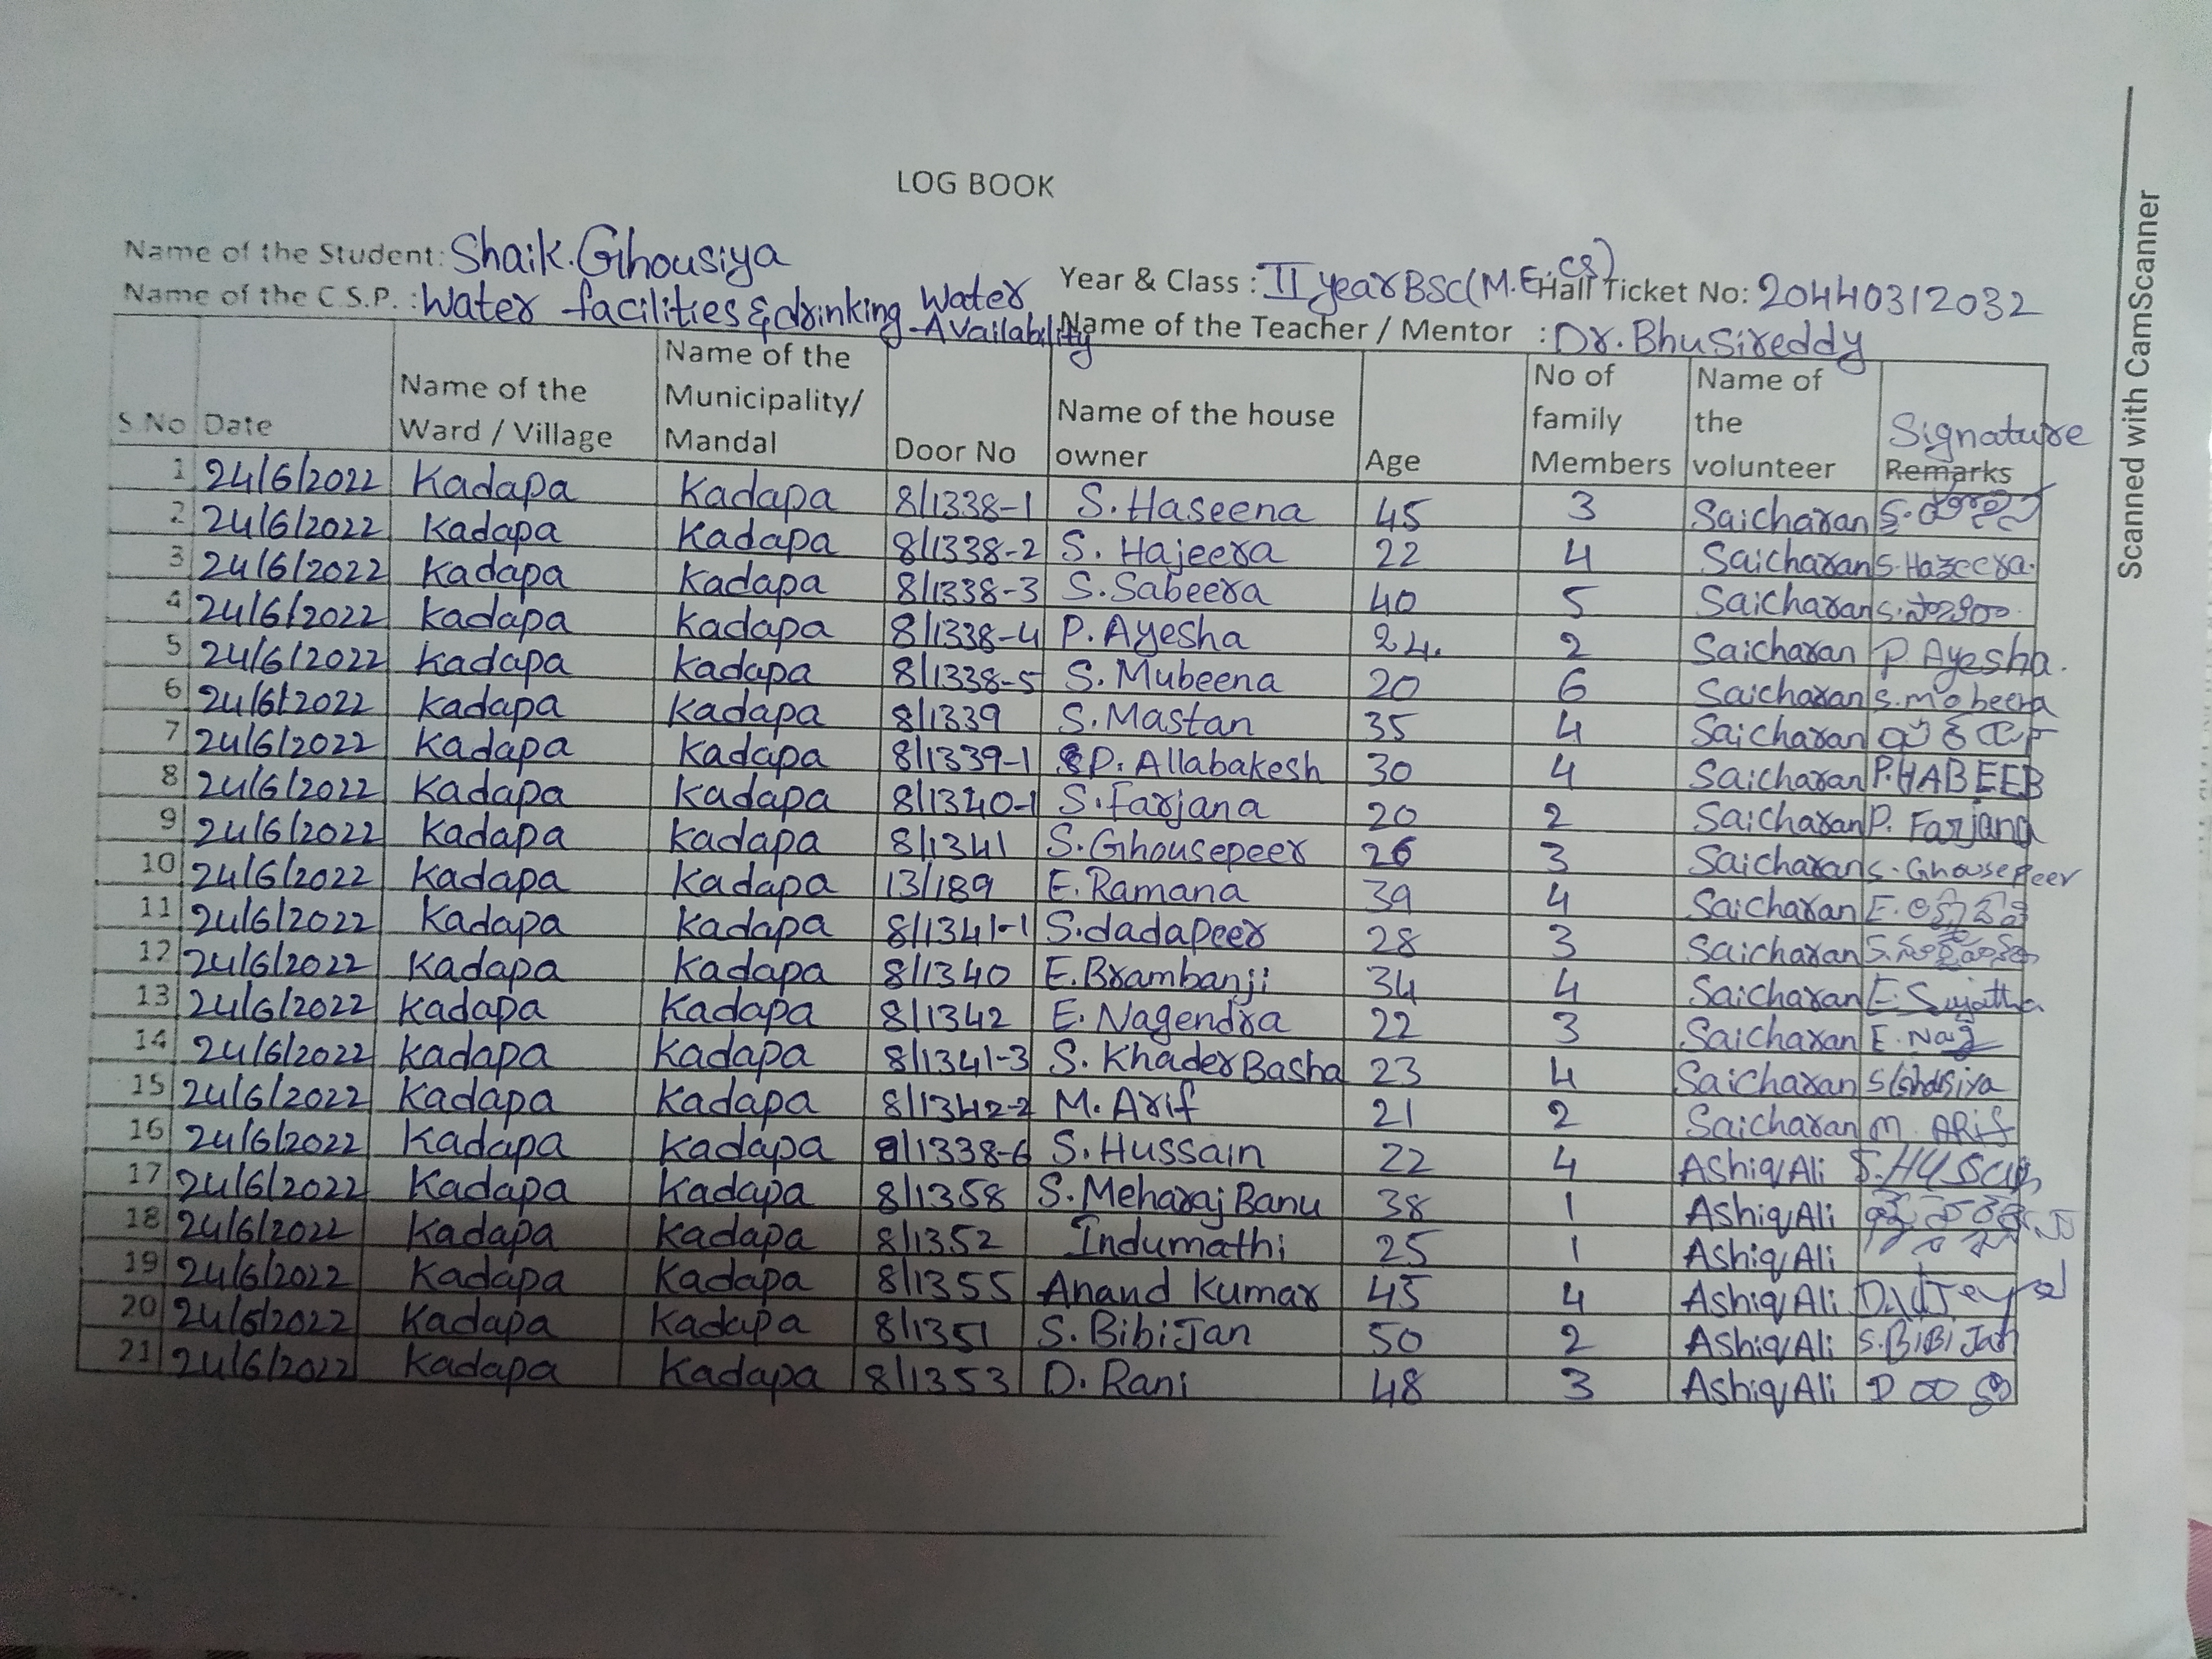 LOG BOOK
Name of the Student: Shaik.Ghousiya
Year & Class : II year BSC(M.E.CS) Hall Ticket No: 20440312032
Name of the C.S.P. : Water facilities & drinking Water Availability
Name of the Teacher / Mentor : Dr.BhuSireddy
S No Date Name of the Ward / Village Name of the Municipality/ Mandal Door No Name of the house owner Age No of family Members Name of the volunteer Signature Remarks
1 24/6/2022 Kadapa Kadapa 8/1338-1 S.Haseena 45 3 Saicharan
2 24/6/2022 Kadapa Kadapa 8/1338-2 S. Hajeera 22 4 Saicharan S.Hazeera.
3 24/6/2022 Kadapa Kadapa 8/1338-3 S.Sabeera 40 5 Saicharan
4 24/6/2022 Kadapa Kadapa 8/1338-4 P. Ayesha 24. 2 Saicharan P. Ayesha.
5 24/6/2022 Kadapa Kadapa 8/1338-5 S. Mubeena 20 6 Saicharan
6 24/6/2022 Kadapa Kadapa 8/1339 S.Mastan 35 4 Saicharan
7 24/6/2022 Kadapa Kadapa 8/1339-1 P. Allabakesh 30 4 Saicharan P.HABEEB
8 24/6/2022 Kadapa Kadapa 8/1340-1 S.Farjana 20 2 Saicharan P. Farjana
9 24/6/2022 Kadapa Kadapa 8/1341 S.Ghousepeer 26 3 Saicharan S.Ghousepeer
10 24/6/2022 Kadapa Kadapa 13/189 E.Ramana 39 4 Saicharan
11 24/6/2022 Kadapa Kadapa 8/1341-1 S.dadapeer 28 3 Saicharan
12 24/6/2022 Kadapa Kadapa 8/1340 E.Brambanji 34 4 Saicharan E.Sujatha
13 24/6/2022 Kadapa Kadapa 8/1342 E. Nagendra 22 3 Saicharan E.Nag
14 24/6/2022 Kadapa Kadapa 8/1341-3 S. Khader Basha 23 4 Saicharan S Ghousiya
15 24/6/2022 Kadapa Kadapa 8/1342-2 M. Arif 21 2 Saicharan M. ARif
16 24/6/2022 Kadapa Kadapa 8/1338-6 S. Hussain 22 4 Ashiq Ali
17 24/6/2022 Kadapa Kadapa 8/1358 S.Meharaj Banu 38 1 Ashiq Ali
18 24/6/2022 Kadapa Kadapa 8/1352 Indumathi 25 1 Ashiq Ali
19 24/6/2022 Kadapa Kadapa 8/1355 Anand Kumar 45 4 Ashiq Ali
20 24/6/2022 Kadapa Kadapa 8/1351 S.BibiJan 50 2 Ashiq Ali S.BIBI Jan
21 24/6/2022 Kadapa Kadapa 8/1353 D. Rani 48 3 Ashiq Ali
Scanned with CamScanner